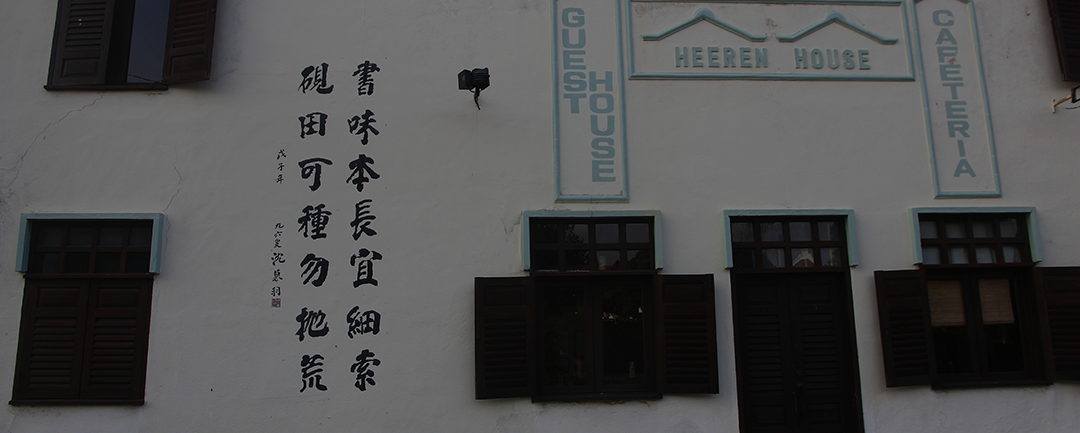 書味本長宜細索
硯田可種勿抛荒
戊子年 九六叟沈慕羽
GUEST
HOUSE
HEEREN HOUSE
CAFETERIA